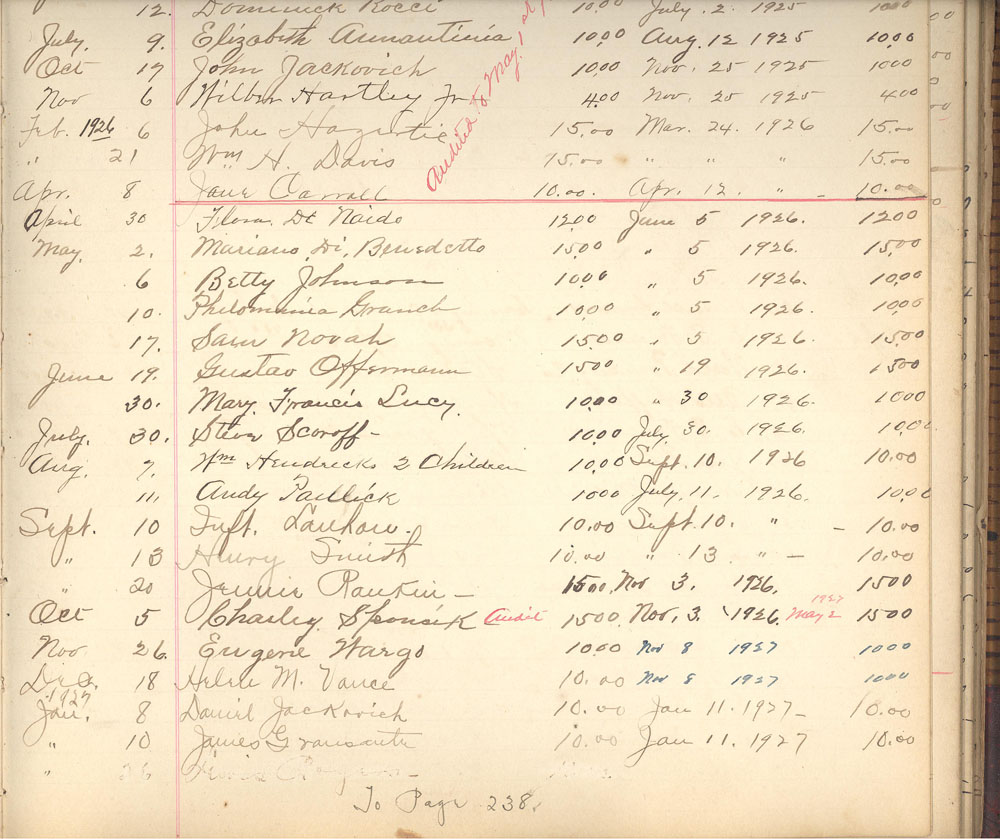 12. Dominick Rocci 10.00 July. 2. 1925 1000
July. 9. Elizabeth 1000 Aug. 12 1925 1000
Oct 17 John Jackovich 1000 Nov. 25 1925 1000
Nov 6 Wilber Hartley Jr 4.00 Nov. 25 1925 400
Feb. 1926 6 John 15.00 Mar. 24. 1926 15.00
" 21 Wm H. Davis 15.00 " " " 15.00
audited to May. 1
Apr. 8 Jane Carroll 10.00. Apr. 12. " - 10.00
April 30 Flora De Naido 1200 June 5 1926. 1200
May. 2. Mariano Di, Benedetto 1500 " 5 1926. 15.00
6 Betty Johnson 1000 " 5 1926. 1000
10. Philomania Granch 1000 " 5 1926. 1000
17. Sam Novak 1500 " 5 1926. 1500
June 19. Gustav Offermann 1500 " 19 1926. 1500
30. Mary. Francis Lucy. 1000 " 30 1926. 1000
July. 30. Steve Scoroff - 1000 July. 30. 1926. 1000
Aug. 7. Wm Hendricks 2 Children 10.00 Sept. 10. 1926 10.00
11. Andy Paellick 1000 July. 11. 1926. 1000
Sept. 10 Inft. Lanham. 10.00 Sept. 10. " - 10.00
" 13 Henry Smith 10.00 " 13 " - 10.00
" 20 Jennie Rankin - 1500 Nov 3. 1926. 1500
Oct 5 Charley Sponsik Audit 1500. Nov. 3. 1926 May 2 1927 1500
Nov 26. Eugene Wargo 1000 Nov 8 1927 1000
Dec. 18 Helen M. Vance 10.00 Nov 8 1927 1000
1927
Jan. 8 Daniel Jackovich 10.00 Jan 11. 1927 - 10.00
" 10 James 10.00 Jan 11. 1927 10.00
" 26
To Page 238.